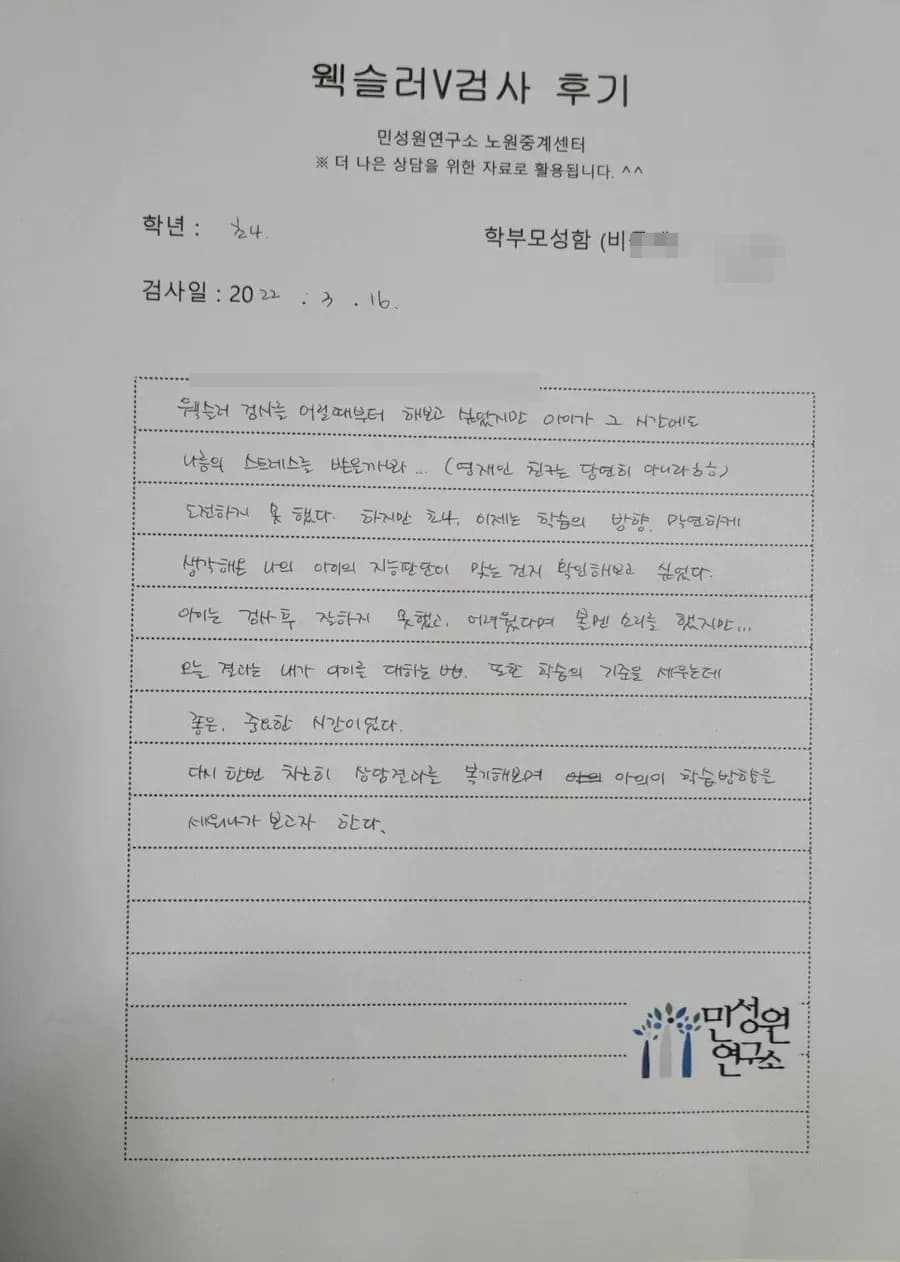 웩슬러V검사 후기
민성원연구소 노원중계센터
※ 더 나은 상담을 위한 자료로 활용됩니다. ^^
학년 : 초4.
학부모성함 (비
검사일 : 2022 . 3 . 16.
웩슬러 검사를 어릴때부터 해보고 싶었지만 아이가 그 시간에도
나름의 스트레스를 받을까봐 ... (영재인 친구는 당연히 아니라 ㅎㅎ)
도전하지 못 했다. 하지만 초4, 이제는 학습의 방향, 막연하게
생각해온 나의 아이의 지능판단이 맞는 건지 확인해보고 싶었다.
아이는 검사 후 잘하지 못했고, 어려웠다며 볼멘 소리를 했지만...
오늘 결과는 내가 아이를 대하는 법, 또한 학습의 기준을 세우는데
좋은, 중요한 시간이었다.
다시 한번 차근히 상담결과를 복기해보며 아의이 학습방향을
세워나가 보고자 한다.
민성원
연구소